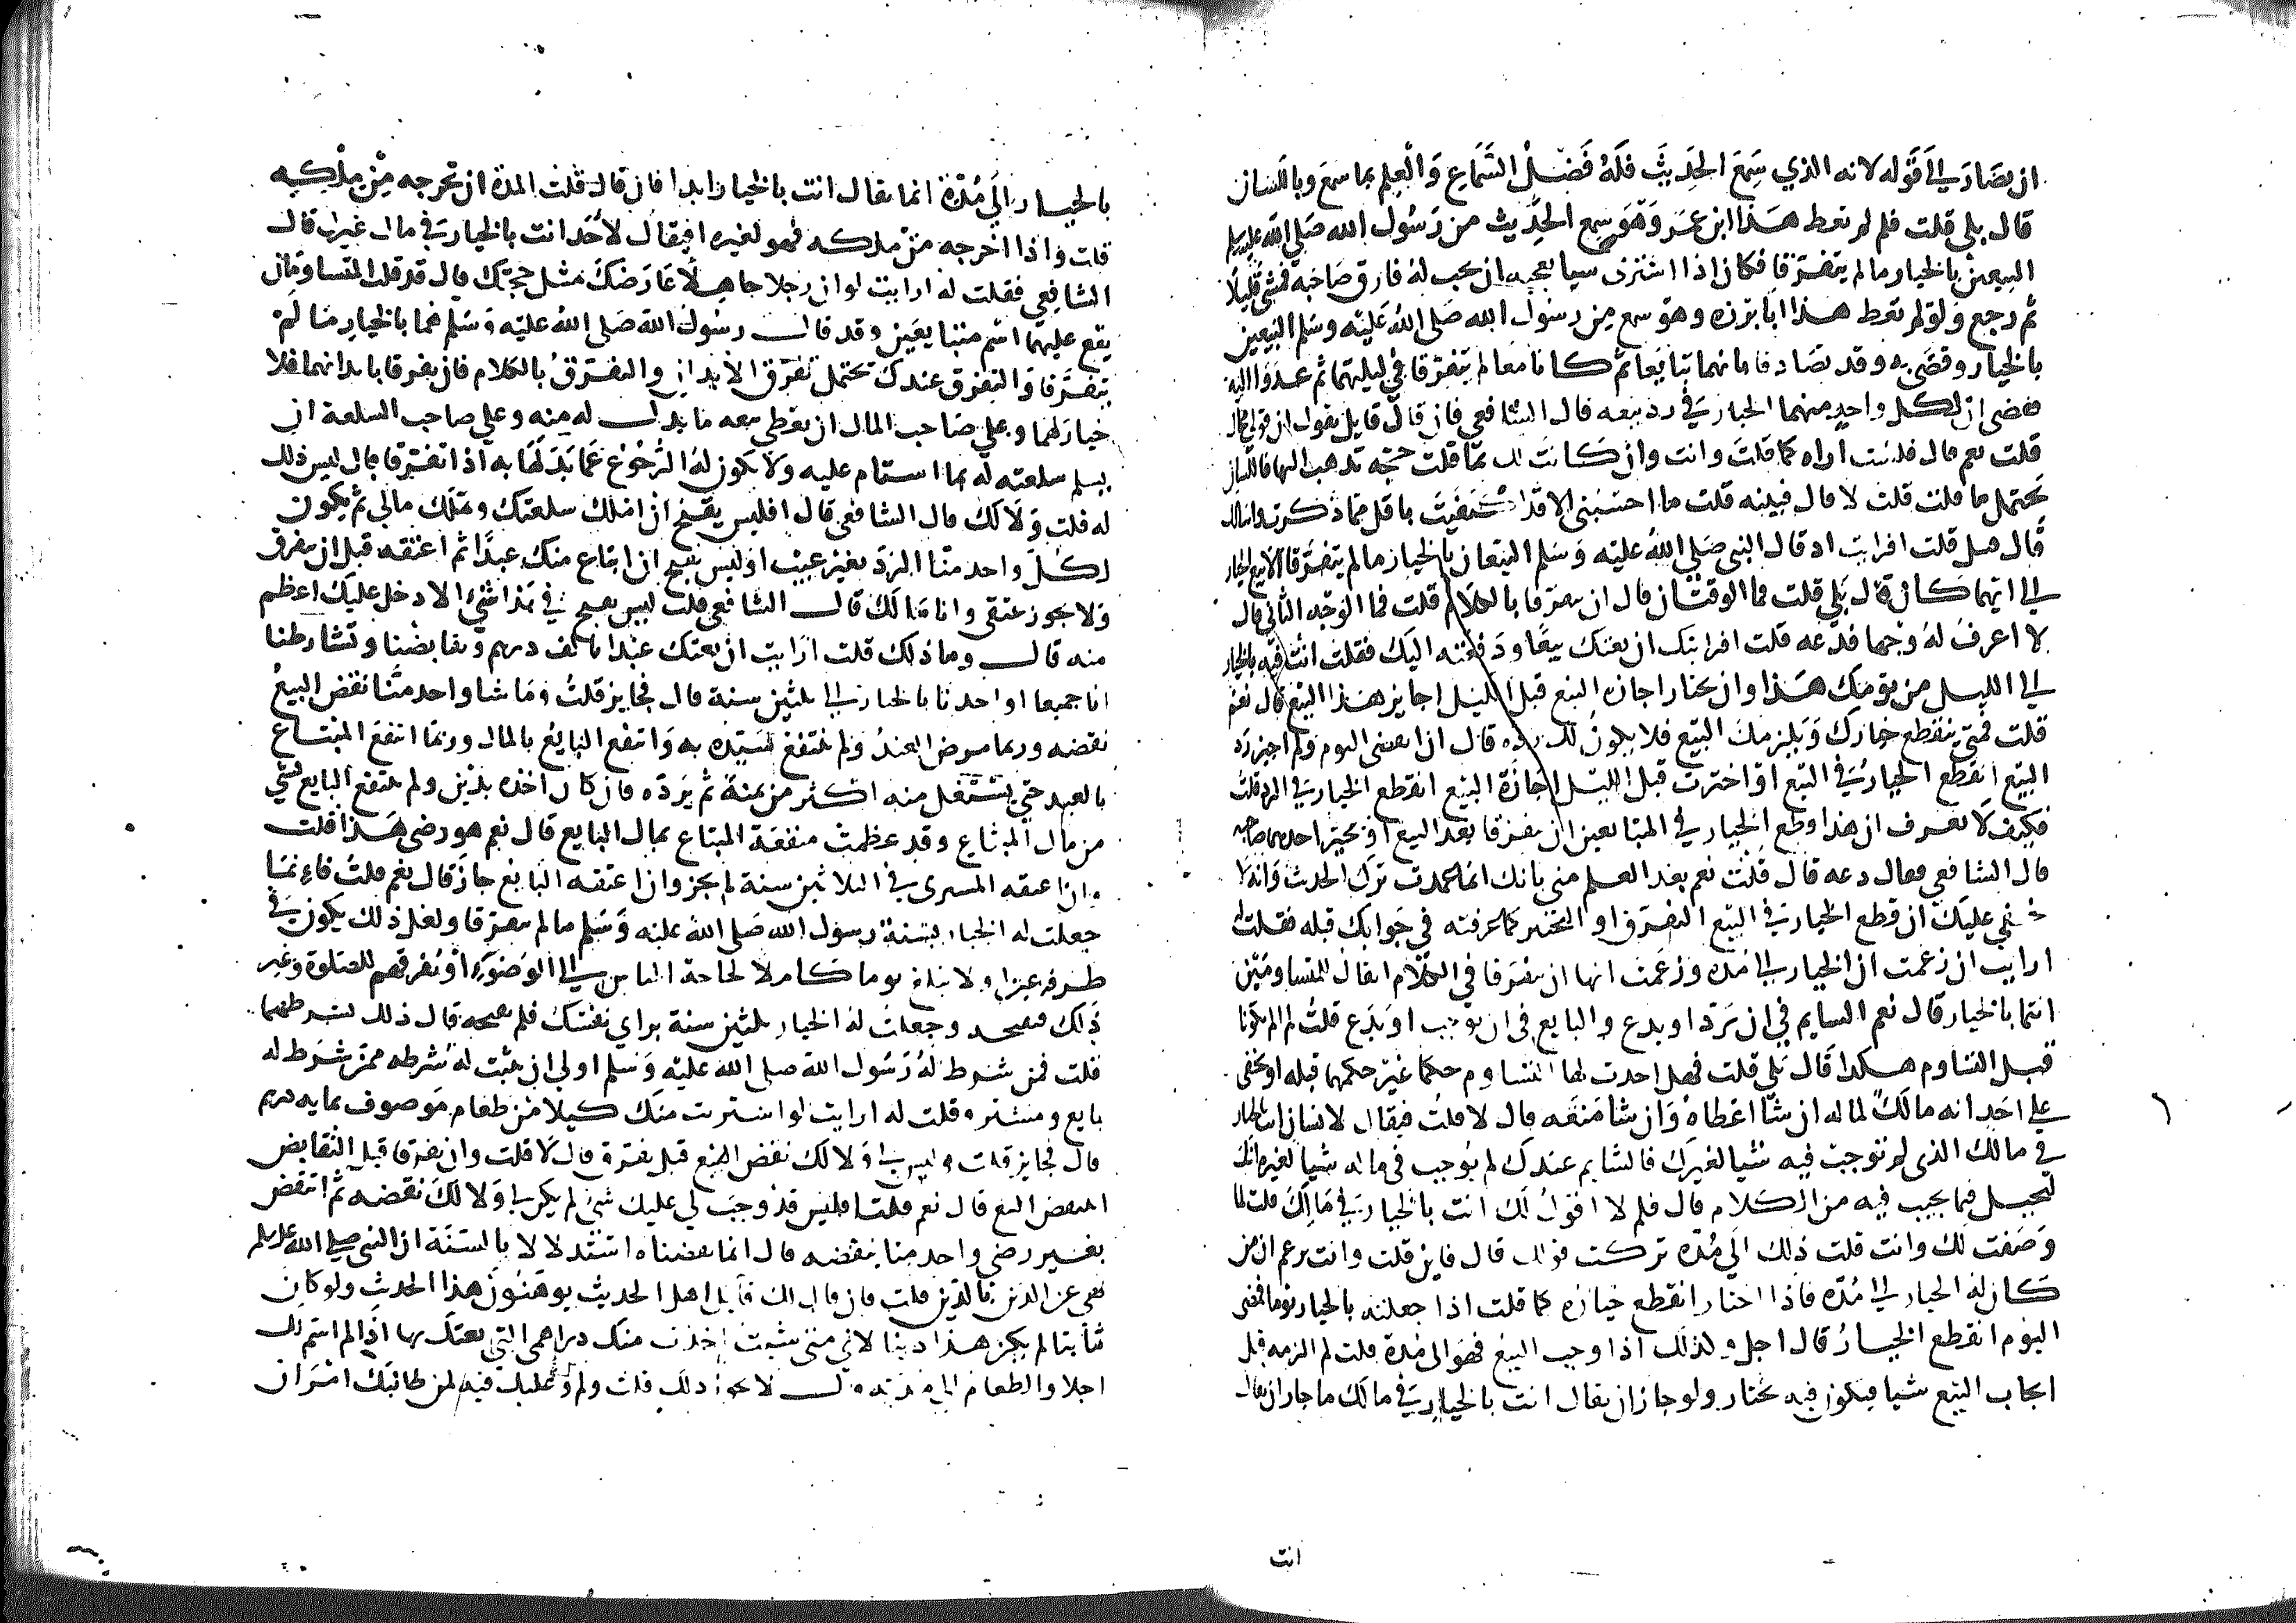 ان يصار الي قوله لانه الذي سمع الحديث فله فضل السماع والعلم بما سمع وباللسان
قال بلي قلت فلم لم تعط هذا ابن عمر وهو سمع الحديث من رسول الله صلي الله عليه وسلم
البيعين بالخيار ما لم يتفرقا فكان اذا اشترى شيا يعجبه ان يجب له فارق صاحبه فمشى قليلا
ثم رجع ولم لم تعط هذا ابا برزه وهو سمع من رسول الله صلى الله عليه وسلم البيعين
بالخيار وقضى به وقد تصادقا بانهما تبايعا ثم كانا معا لم يتفرقا في ليلتهما ثم غدوا اليه
فقضى ان لكل واحد منهما الخيار في رد بيعه قال الشافعي فان قال قايل يقول ان قولي محال
قلت نعم قال فلست اراه كما قلت وانت وان كانت لك بما قلت حجه تذهب اليها فاللسان
يحتمل ما قلت قلت لا قال فبينه قلت ما احسبني الا قد اكتفيت باقل مما ذكرت واسالك
قال هل قلت افرايت اذ قال النبي صلي الله عليه وسلم البيعان بالخيار ما لم يتفرقا الا بيع الخيار
الي ايهما كان قال بلي قلت فما الوقتان قال ان يتفرقا بالكلام قلت فما الوجه الثاني قال
لا اعرف له وجها فدعه قلت افرايتك ان بعتك بيعا ودفعته اليك فقلت انت فيه بالخيار
الي الليل من يومك هذا وان تختار اجازه البيع قبل الليل اجايز هذا البيع قال نعم
قلت فمتى ينقطع خيارك ويلزمك البيع فلا يكون لك رده قال ان انقضى اليوم ولم اختر رد
البيع انقطع الخيار في البيع او اخترت قبل الليل اجازة البيع انقطع الخيار في الرد قلت
فكيف لا تعرف ان هذا وقطع الخيار في المتبايعين ان يتفرقا بعد البيع او يخير احدهما صاحبه
قال الشافعي فقال دعه قال قلت نعم بعد العلم مني بانك انما عمدت ترك الحديث وانه لا
يخفي عليك ان قطع الخيار في البيع التفرق او التخيير كما عرفته في جوابك قبله فقلت له
ارايت ان زعمت ان الخيار الي مده وزعمت انها ان يتفرقا في الكلام ايقال للمتساومين
انتما بالخيار قال نعم السايم في ان يرد او يدع والبايع في ان يوجب او يدع قلت الم يكونا
قبل التساوم هكذا قال بلي قلت فهل احدث لهما التساوم حكما غير حكمهما قبله او يخفى
علي احد انه مالك لماله ان شا اعطاه وان شا منعه قال لا قلت فيقال لانسان انت بالخيار
في مالك الذي لم توجب فيه شيا لغيرك فالسايم عندك لم يوجب في ماله شيا لغيره انك
لتحيل فيما تجيب فيه من الكلام قال فلم لا اقول لك انت بالخيار في مالك قلت لما
وصفت لك وانت قلت ذلك الي مده تركت قولك قال فاين قلت وانت تزعم ان من
كان له الخيار الي مده فاذا اختار انقطع خياره كما قلت اذا جعلته بالخيار يوما فمضى
اليوم انقطع الخيار قال اجل ولذلك اذا وجب البيع فهو الى مدة قلت لم الزمه قبل
ايجاب البيع شيا فيكون فيه يختار ولو جاز ان يقال انت بالخيار في مالك ما جاز ان يقال
انت
بالخيار الي مده انما يقال انت بالخيار ابدا فان قال قلت المدة ان تخرجه من ملكه
قلت واذا اخرجه من ملكه فهو لغيره افيقال لاحد انت بالخيار في مال غيرك قال
الشافعي فقلت له ارايت لو ان رجلا جاهلا عارضك بمثل حجتك قال قد قلت المتساومان
يقع عليهما اسم متبايعين وقد قال رسول الله صلى الله عليه وسلم هما بالخيار ما لم
يتفرقا والتفرق عندك يحتمل تفرق الابدان والتفرق بالكلام فان تفرقا بابدانهما فلا
خيار لهما وعلي صاحب المال ان يعطي بيعه ما بذل له منه وعلي صاحب السلعة ان
يسلم سلعته له بما استام عليه ولا يكون له الرجوع عما بذلها به اذا تفرقا قال ليس ذلك
له قلت ولا لك قال الشافعي قال افليس يقبح ان املك سلعتك وتملك مالي ثم يكون
لكل واحد منا الرد بغير عيب اوليس يقبح ان ابتاع منك عبدا ثم اعتقه قبل ان نتفرق
ولا يجوز عتقي وانا مالك قال الشافعي قلت ليس يقبح في هذا شيء الا دخل عليك اعظم
منه قال وما ذلك قلت ارايت ان بعتك عبدا بالف درهم وتقابضنا وتشارطنا
انا جميعا او احدنا بالخيار الي ثلثين سنة قال فجايز قلت ومتى شا واحد منا نقض البيع
نقضه وربما مرض العبد ولم ينتفع به سيده وانتفع البايع بالمال وربما انتفع المبتاع
بالعبد حتي يستغل منه اكثر من ثمنه ثم يرده فان كان اخذه بدين ولم ينتفع البايع بشي
من مال المبتاع وقد عظمت منفعة المبتاع بمال البايع قال نعم هو رضى هذا قلت
وان اعتقه المشتري في الثلاثين سنة لم يجز وان اعتقه البايع جاز قال نعم قلت فانما
جعلت له الخيار بسنة رسول الله صلى الله عليه وسلم ما لم يتفرقا ولعل ذلك يكون في
طرفة عين او لا يبلغ يوما كاملا لحاجة الناس الي الوضوء او تفرقهم للصلوة وغير
ذلك فقبحته وجعلت له الخيار ثلثين سنة براي نفسك فلم تقبحه قال ذلك بشرطهما
قلت فمن شرط له رسول الله صلى الله عليه وسلم اولي ان يثبت له شرطه ممن شرط له
بايع ومشتر قلت له ارايت لو اشتريت منك كيلا من طعام موصوف بمايه درهم
قال فجايز قلت وليس لي ولا لك نقض البيع قبل تفرق قال لا قلت وان تفرقنا قبل التقابض
انتقض البيع قال نعم قلت افليس قد وجب لي عليك شيء لم يكن لي ولا لك نقضه ثم انتقض
بغير رضى واحد منا بنقضه قال انما نقضناه استدلالا بالسنة ان النبي صلي الله عليه وسلم
نهى عن الدين بالدين قلت فان قال لك قايل اهل الحديث يوهنون هذا الحديث ولو كان
ثابتا لم يكن هذا دينا لاني متى شيت اخذت منك دراهمي التي بعتك بها اذا لم اسم لك
اجلا والطعام الي مدته قال لا يجوز ذلك قلت ولم وعليك فيه لمن طالبك امران